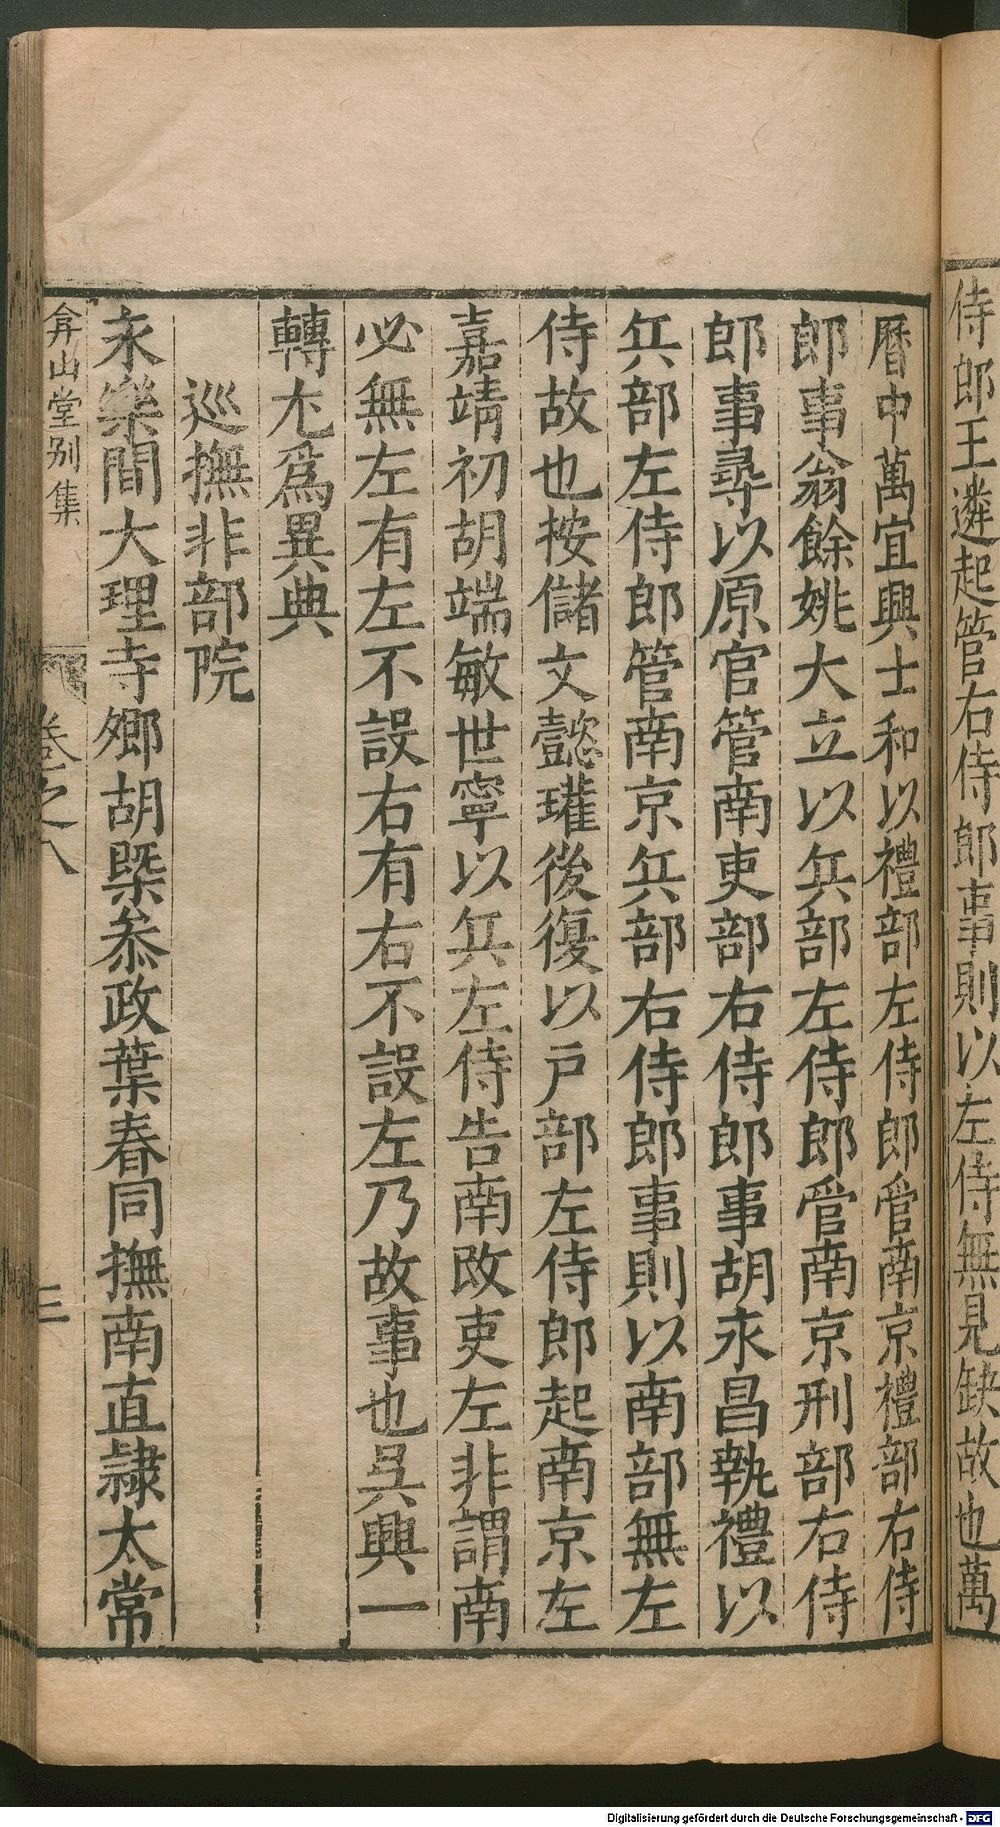 侍郎王遴起管右侍郎事則以左侍無見缺故也萬
曆中萬宜興士和以禮部左侍郎管南京禮部右侍
郎事翁餘姚大立以兵部左侍郎管南京刑部右侍
郎事尋以原官管南吏部右侍郎事胡永昌執禮以
兵部左侍郎管南京兵部右侍郎事則以南部無左
侍故也按儲文懿瓘後復以戶部左侍郎起南京左
嘉靖初胡端敏世寧以兵左侍告南改吏左非謂南
必無左有左不設右有右不設左乃故事也吳興一
轉尤爲異典
巡撫非部院
永樂間大理寺鄉胡槩叅政葉春同撫南直隷太常
弇山堂别集
卷之八
三
Digitalisierung gefördert durch die Deutsche Forschungsgemeinschaft - DFG